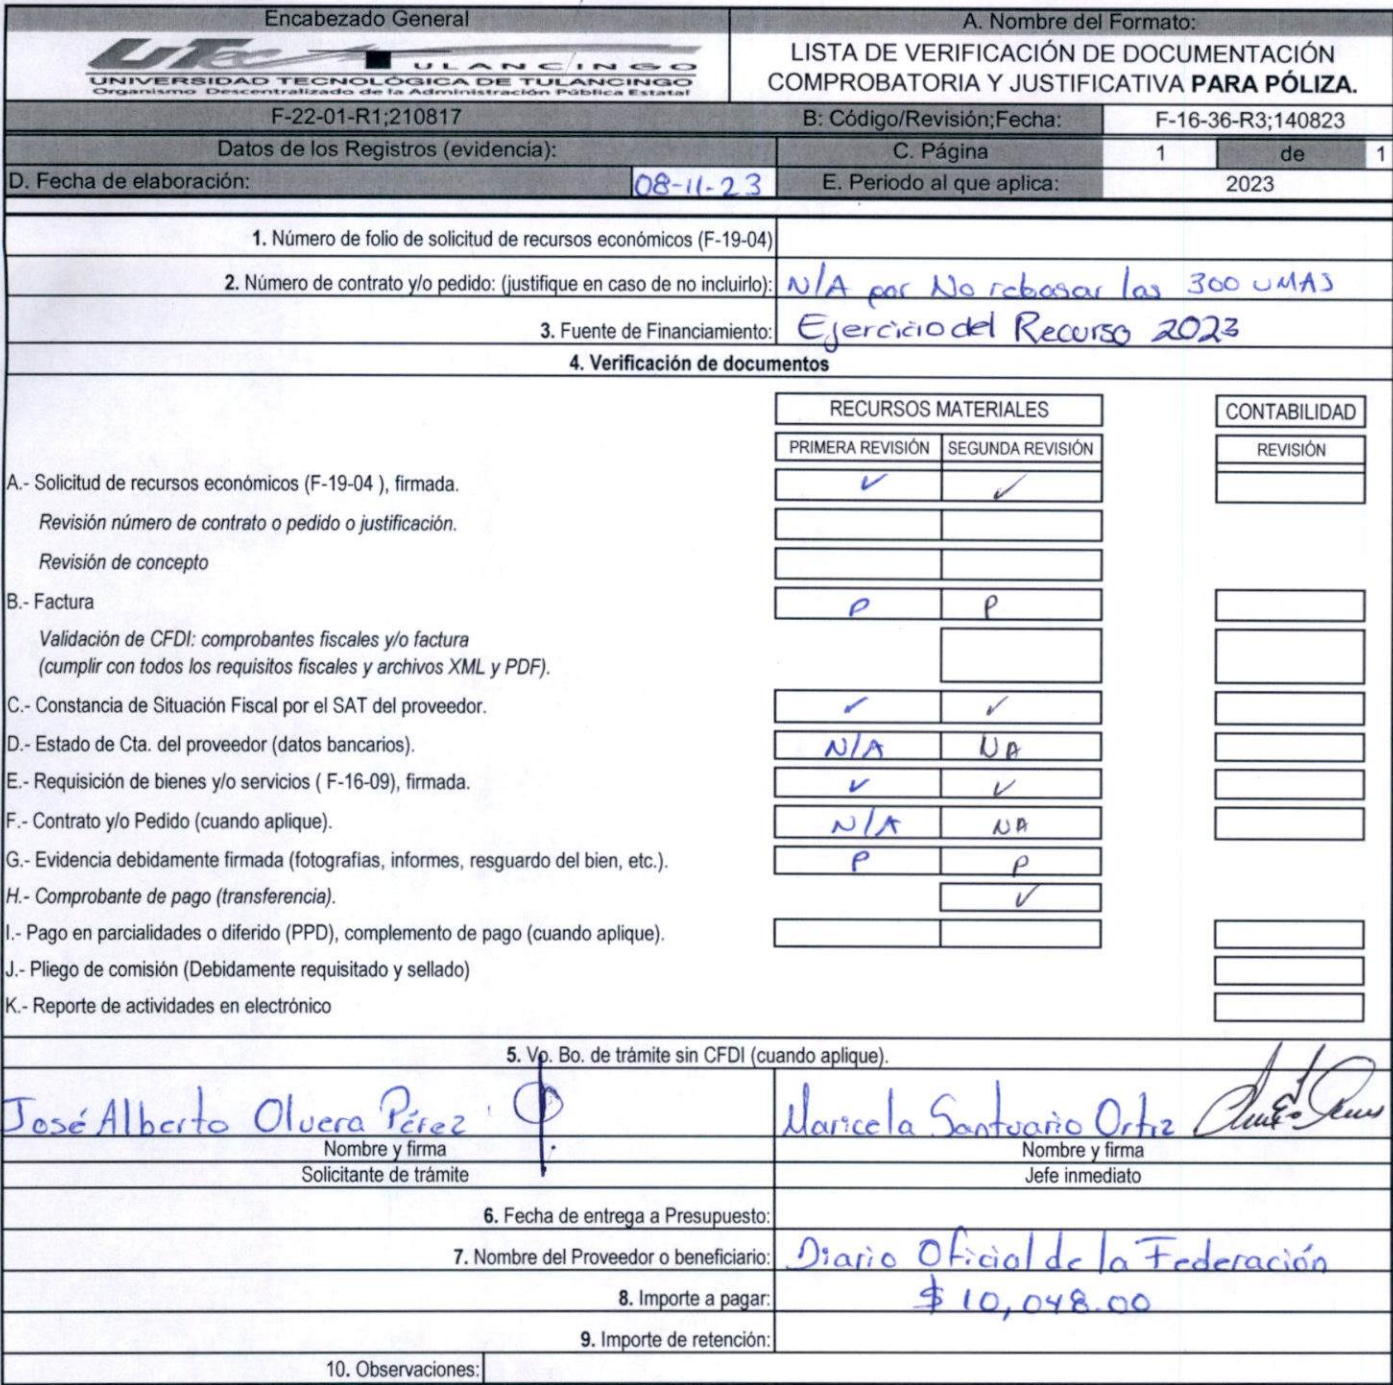 Encabezado General
A. Nombre del Formato:
UTec TULANCINGO
UNIVERSIDAD TECNOLÓGICA DE TULANCINGO
Organismo Descentralizado de la Administración Pública Estatal
LISTA DE VERIFICACIÓN DE DOCUMENTACIÓN
COMPROBATORIA Y JUSTIFICATIVA PARA PÓLIZA.
F-22-01-R1;210817
B: Código/Revisión;Fecha: F-16-36-R3;140823
Datos de los Registros (evidencia): C. Página 1 de 1
D. Fecha de elaboración: 08-11-23 E. Periodo al que aplica: 2023
1. Número de folio de solicitud de recursos económicos (F-19-04)
2. Número de contrato y/o pedido: (justifique en caso de no incluirlo): N/A por No rebasar las 300 UMAS
3. Fuente de Financiamiento: Ejercicio del Recurso 2023
4. Verificación de documentos
RECURSOS MATERIALES CONTABILIDAD
PRIMERA REVISIÓN SEGUNDA REVISIÓN REVISIÓN
A.- Solicitud de recursos económicos (F-19-04 ), firmada. ✓ ✓
Revisión número de contrato o pedido o justificación.
Revisión de concepto
B.- Factura P P
Validación de CFDI: comprobantes fiscales y/o factura
(cumplir con todos los requisitos fiscales y archivos XML y PDF).
C.- Constancia de Situación Fiscal por el SAT del proveedor. ✓ ✓
D.- Estado de Cta. del proveedor (datos bancarios). N/A NA
E.- Requisición de bienes y/o servicios ( F-16-09), firmada. ✓ ✓
F.- Contrato y/o Pedido (cuando aplique). N/A NA
G.- Evidencia debidamente firmada (fotografías, informes, resguardo del bien, etc.). P P
H.- Comprobante de pago (transferencia). ✓
I.- Pago en parcialidades o diferido (PPD), complemento de pago (cuando aplique).
J.- Pliego de comisión (Debidamente requisitado y sellado)
K.- Reporte de actividades en electrónico
5. Vo. Bo. de trámite sin CFDI (cuando aplique).
José Alberto Olvera Pérez Maricela Santuario Ortiz
Nombre y firma Nombre y firma
Solicitante de trámite Jefe inmediato
6. Fecha de entrega a Presupuesto:
7. Nombre del Proveedor o beneficiario: Diario Oficial de la Federación
8. Importe a pagar: $ 10,048.00
9. Importe de retención:
10. Observaciones: